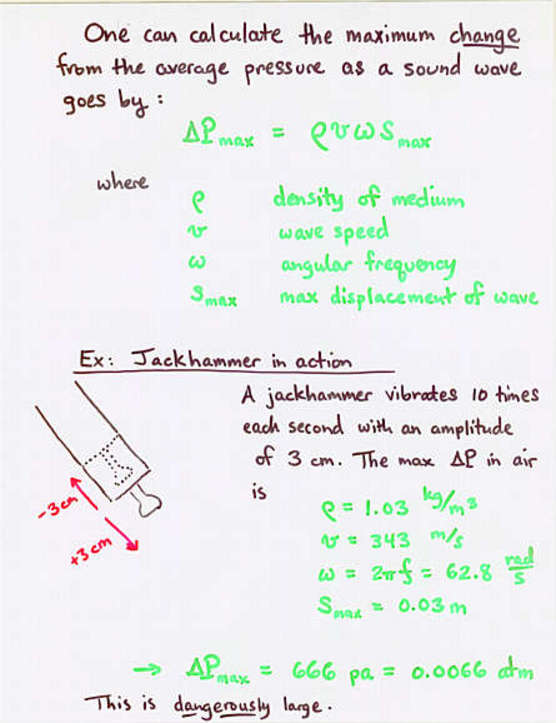 One can calculate the maximum change
from the average pressure as a sound wave
goes by :
ΔP max = ρ v ω s max
where
ρ density of medium
v wave speed
ω angular frequency
s max max displacement of wave
Ex: Jackhammer in action
A jackhammer vibrates 10 times
each second with an amplitude
of 3 cm. The max ΔP in air
is
ρ = 1.03 kg/m³
v = 343 m/s
ω = 2πf = 62.8 rad/s
s max = 0.03 m
-3cm
+3cm
→ ΔP max = 666 pa = 0.0066 atm
This is dangerously large.